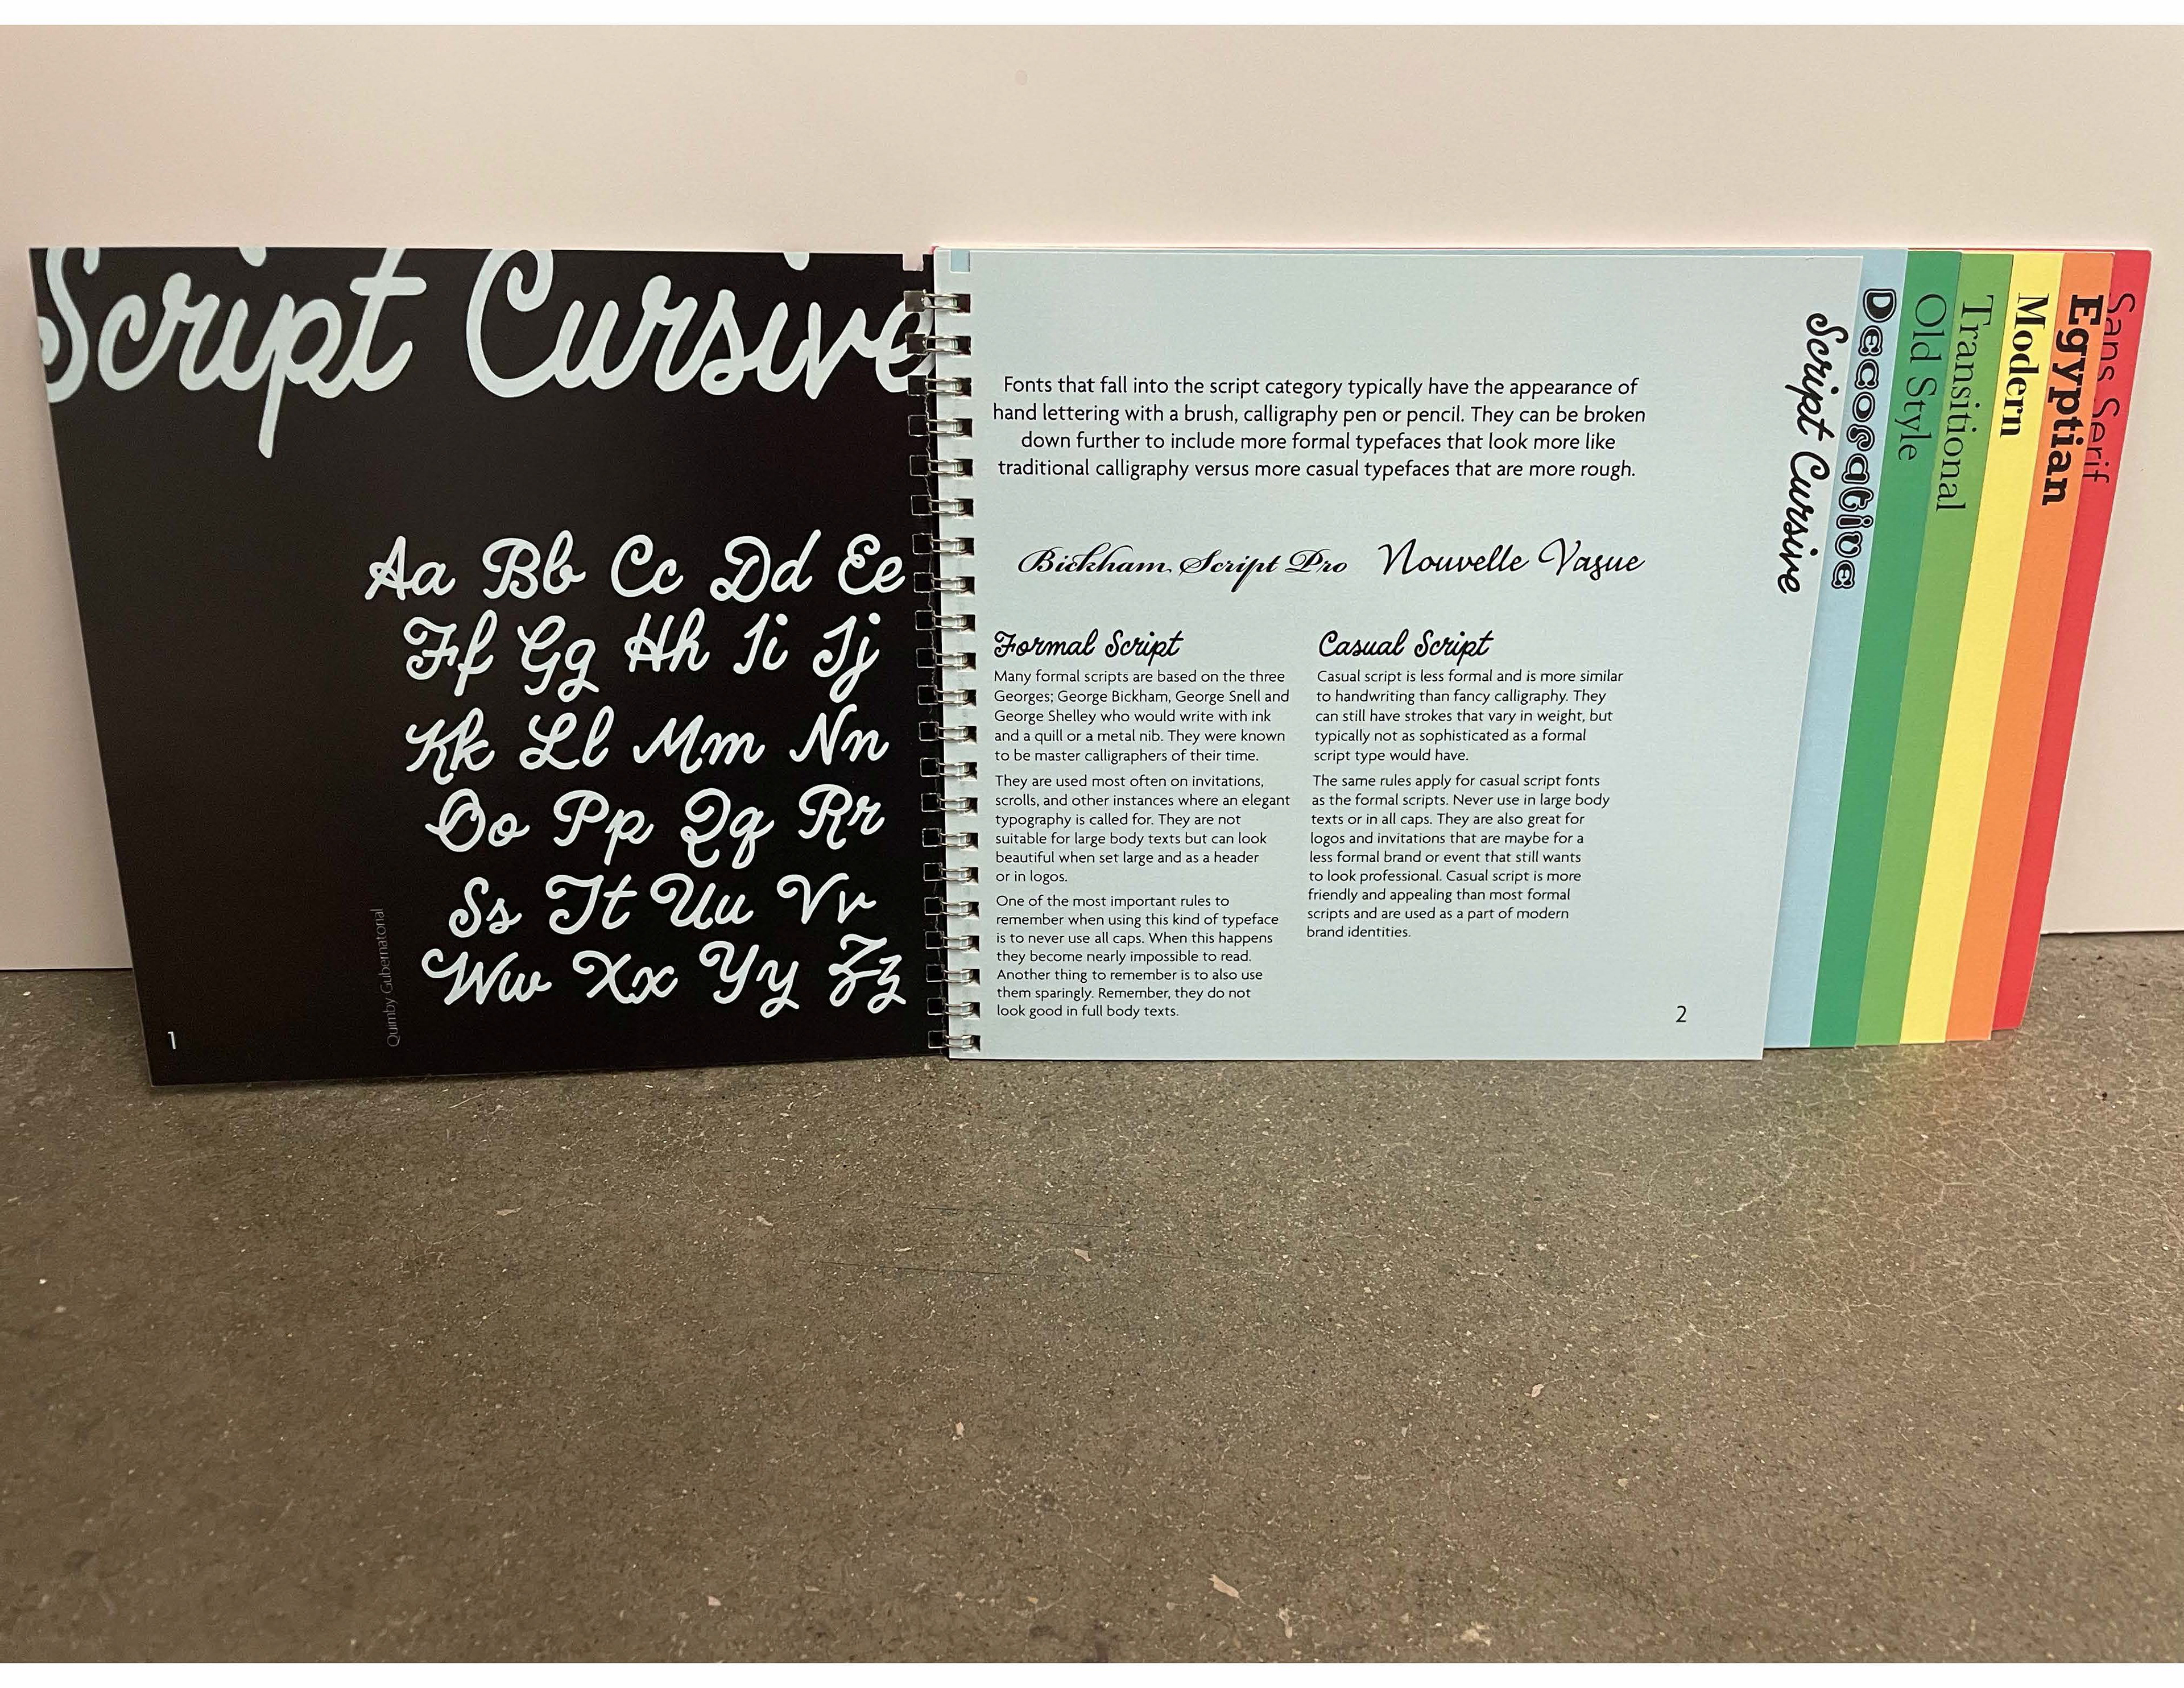 Script Cursive
Aa Bb Cc Dd Ee
Ff Gg Hh Ii Jj
Kk Ll Mm Nn
Oo Pp Qq Rr
Ss Tt Uu Vv
Ww Xx Yy Zz
Quimby Gubernatorial
1
Fonts that fall into the script category typically have the appearance of
hand lettering with a brush, calligraphy pen or pencil. They can be broken
down further to include more formal typefaces that look more like
traditional calligraphy versus more casual typefaces that are more rough.
Bickham Script Pro Nouvelle Vague
Formal Script
Many formal scripts are based on the three
Georges; George Bickham, George Snell and
George Shelley who would write with ink
and a quill or a metal nib. They were known
to be master calligraphers of their time.
They are used most often on invitations,
scrolls, and other instances where an elegant
typography is called for. They are not
suitable for large body texts but can look
beautiful when set large and as a header
or in logos.
One of the most important rules to
remember when using this kind of typeface
is to never use all caps. When this happens
they become nearly impossible to read.
Another thing to remember is to also use
them sparingly. Remember, they do not
look good in full body texts.
Casual Script
Casual script is less formal and is more similar
to handwriting than fancy calligraphy. They
can still have strokes that vary in weight, but
typically not as sophisticated as a formal
script type would have.
The same rules apply for casual script fonts
as the formal scripts. Never use in large body
texts or in all caps. They are also great for
logos and invitations that are maybe for a
less formal brand or event that still wants
to look professional. Casual script is more
friendly and appealing than most formal
scripts and are used as a part of modern
brand identities.
2
Script Cursive
Decorative
Old Style
Transitional
Modern
Egyptian
Sans Serif